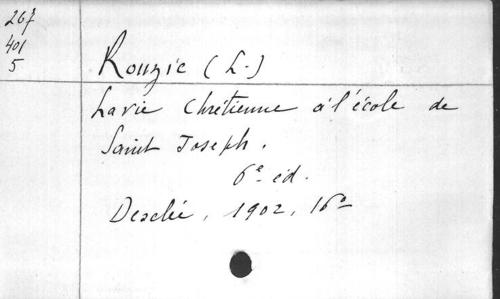 267
401
5
Rouzic (L.)
La vie Chrétienne à l'école de
Saint Joseph.
6e ed.
Desclée, 1902, 16o